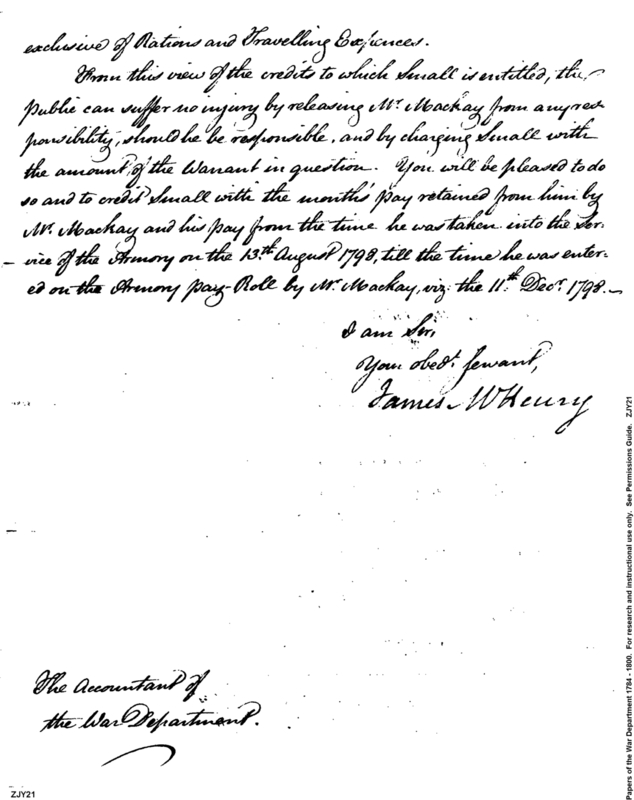 exclusive of Rations and Travelling Expences.
From this view of the credits to which Small is entitled, the
Public can suffer no injury by releasing Mr. Mackay from any res-
ponsibility, should he be responsible, and by charging Small with
the amount, of the Warrant in question. You will be pleased to do
so and to credit Small with the month's pay retained from him by
Mr. Mackay and his pay from the time he was taken into the Ser-
vice of the Armory on the 13th August 1798, till the time he was enter-
ed on the Armory pay-Roll by Mr. Mackay, viz: the 11th Decr. 1798.
I am Sir,
Your obedt. servant,
James McHenry
The Accountant of
the War Department.
ZJY21
Papers of the War Department 1784 - 1800. For research and instructional use only. See Permissions Guide. ZJY21